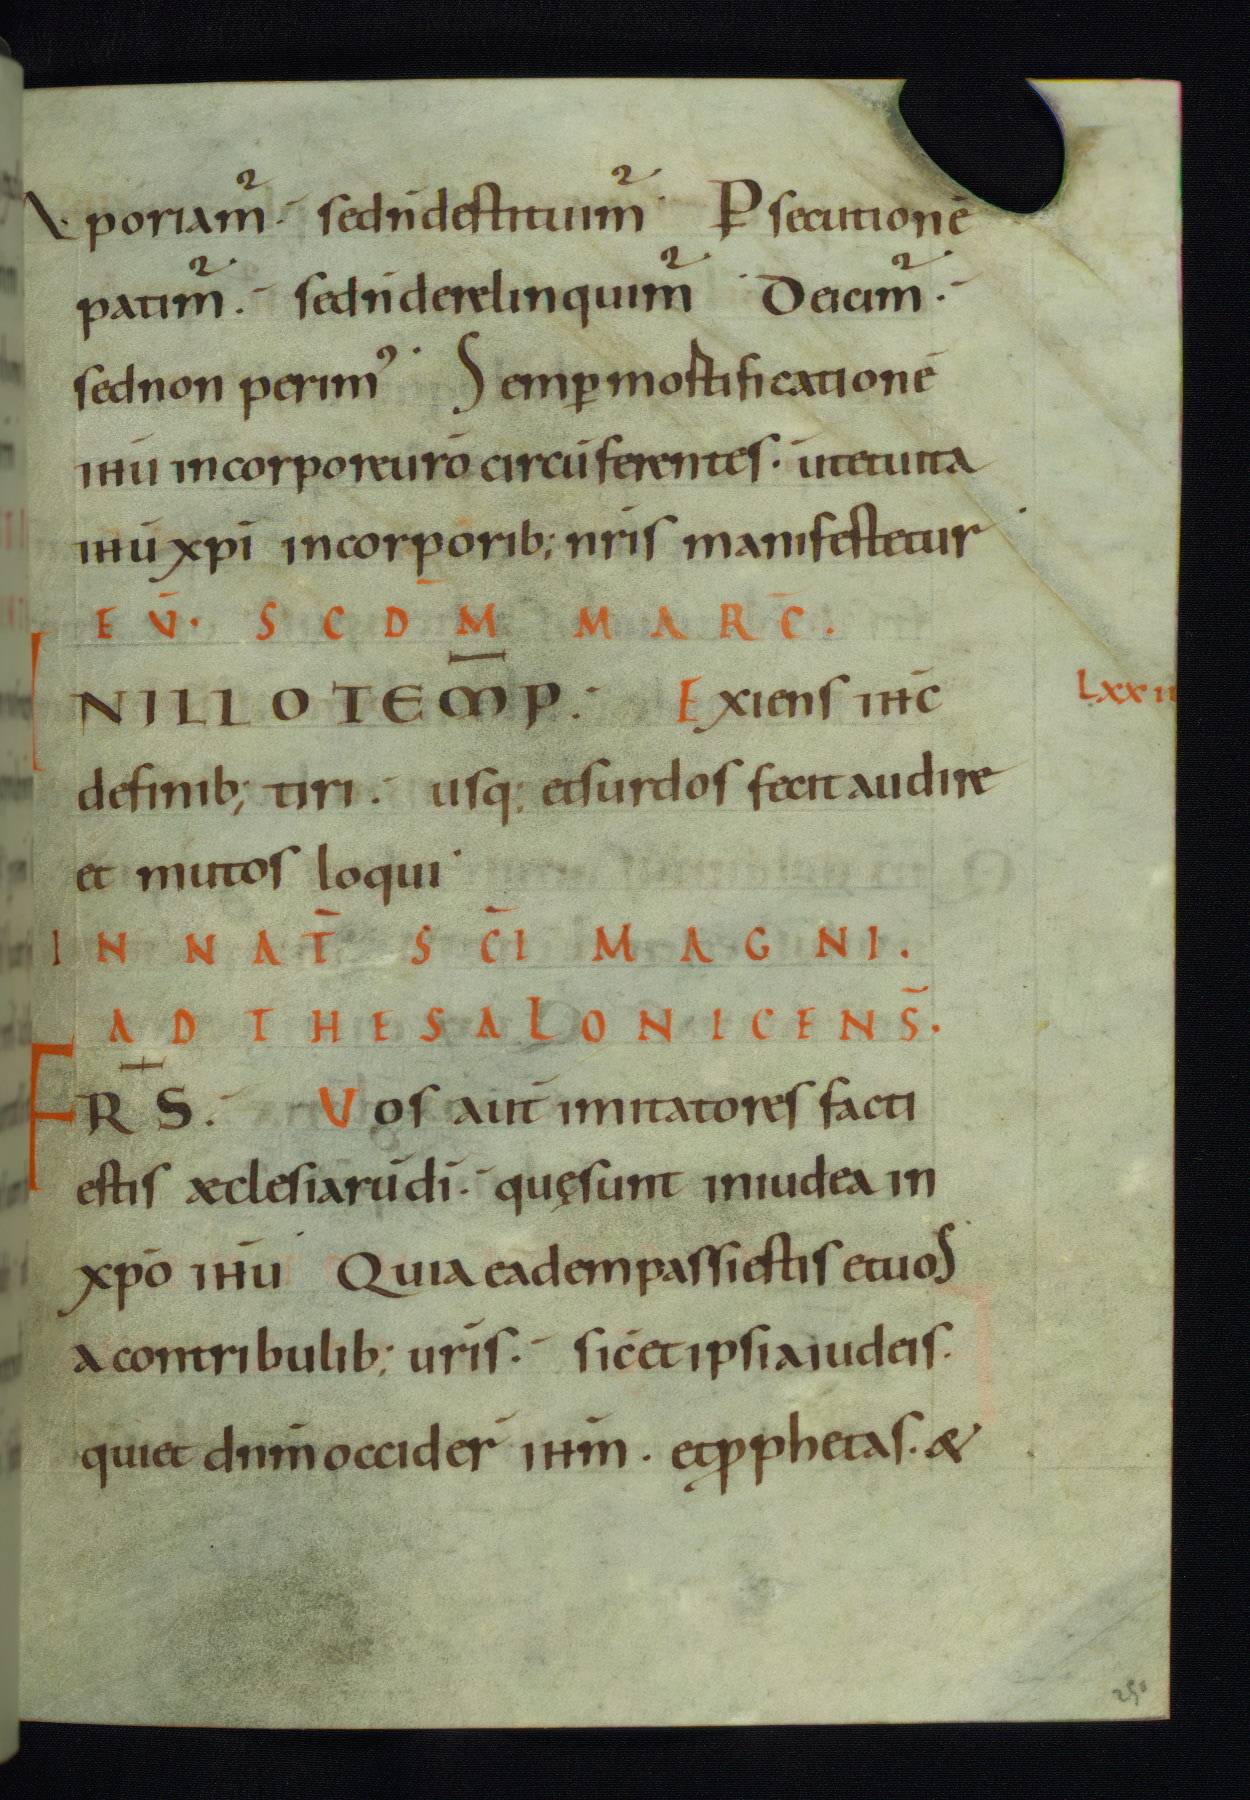 A poriam̄ᷣ. sedn̄destituim̄ᷣ. Ꝑsecutionē
patim̄ᷣ. sedn̄derelinquim̄ᷣ. Deicim̄ᷣ.
sednon perim᾽. Semꝑmortificationē
ihū incorporeurō circūferentes. ūtetuita
ihū xpī incorporib; nrīs manifestetur
EV̄. SCDM̄ MARC̄.
IN ILLO TEMP̄. Exiens ihc̄ LXXII
definib; tiri. usq; etsurdos fecit audire
et mutos loqui
IN NAT̄ SC̄I MAGNI.
AD THESALONICENS̄.
FRS̄. Vos aut̄ imitatores facti
estis æclesiarūdī. quęsunt iniudea in
xpō ihū Quia eadempassiestis etuos
a contribulib; urīs. sic̄etipsiaiudeis.
quiet dnm̄ occider̄ ihm̄. etꝓphetas. &
250